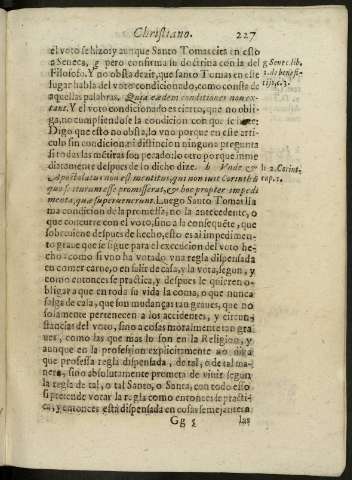 Christiano. 227
el voto se hizo; y aunque Santo Tomas cita en esto
a Seneca, g pero confirma su doctrina con la del
Filosofo. Y no obsta dezir, que santo Tomas en este
lugar habla del voto condicionado, como consta de
aquellas palabras. Quia eædem conditiones non ex-
tant. Y el voto condicionado es cierto, que no obli-
ga, no cumpliendose la condicion con que se haze:
Digo que esto no obsta, lo vno porque en este arti-
culo sin condicion, ni distincion ninguno pregunta
si todas las mētiras son pecado: lo otro porque imme
diatamente despues de lo dicho dize. h Vnde, &
Apostolatur non est mentitus, qui non iuit Corinthū
quo se iturum esse promisserat, & hoc propter impedi
menta, quæ superuenerunt. Luego Santo Tomas lla
ma condicion de la promessa, no la antecedente, o
que concurre con el voto, sino a la consequēte, que
sobreuiene despues de hecho, esto es al impedimen-
to graue que se sigue para el execucion del voto he-
cho: como si vno ha votado vna regla dispensada
en comer carne, o en salir de casa, y la vota, segun, y
como entonces se practica, y despues le quieren o-
bligar a que en toda su vida la coma, o que nunca
salga de casa, que son mudanças tan graues, que no
solamente pertenecen a los accidentes, y circun-
stancias del voto, sino a cosas moralmente tan gra
ues, como las que mas lo son en la Religion, y
aunque en la profession explicitamente no diga
que professa regla dispensada, de tal, o de tal ma-
nera, sino absolutamente prometa de viuir segun
la regla de tal, o tal Santo, o Santa, con todo esso
si pretende votar la regla como entonces se practi-
ca, y entonces está dispensada en cosas semejantes a
Gg 5 las
g Senec. lib.
h 2. Corint.
cap. 1.